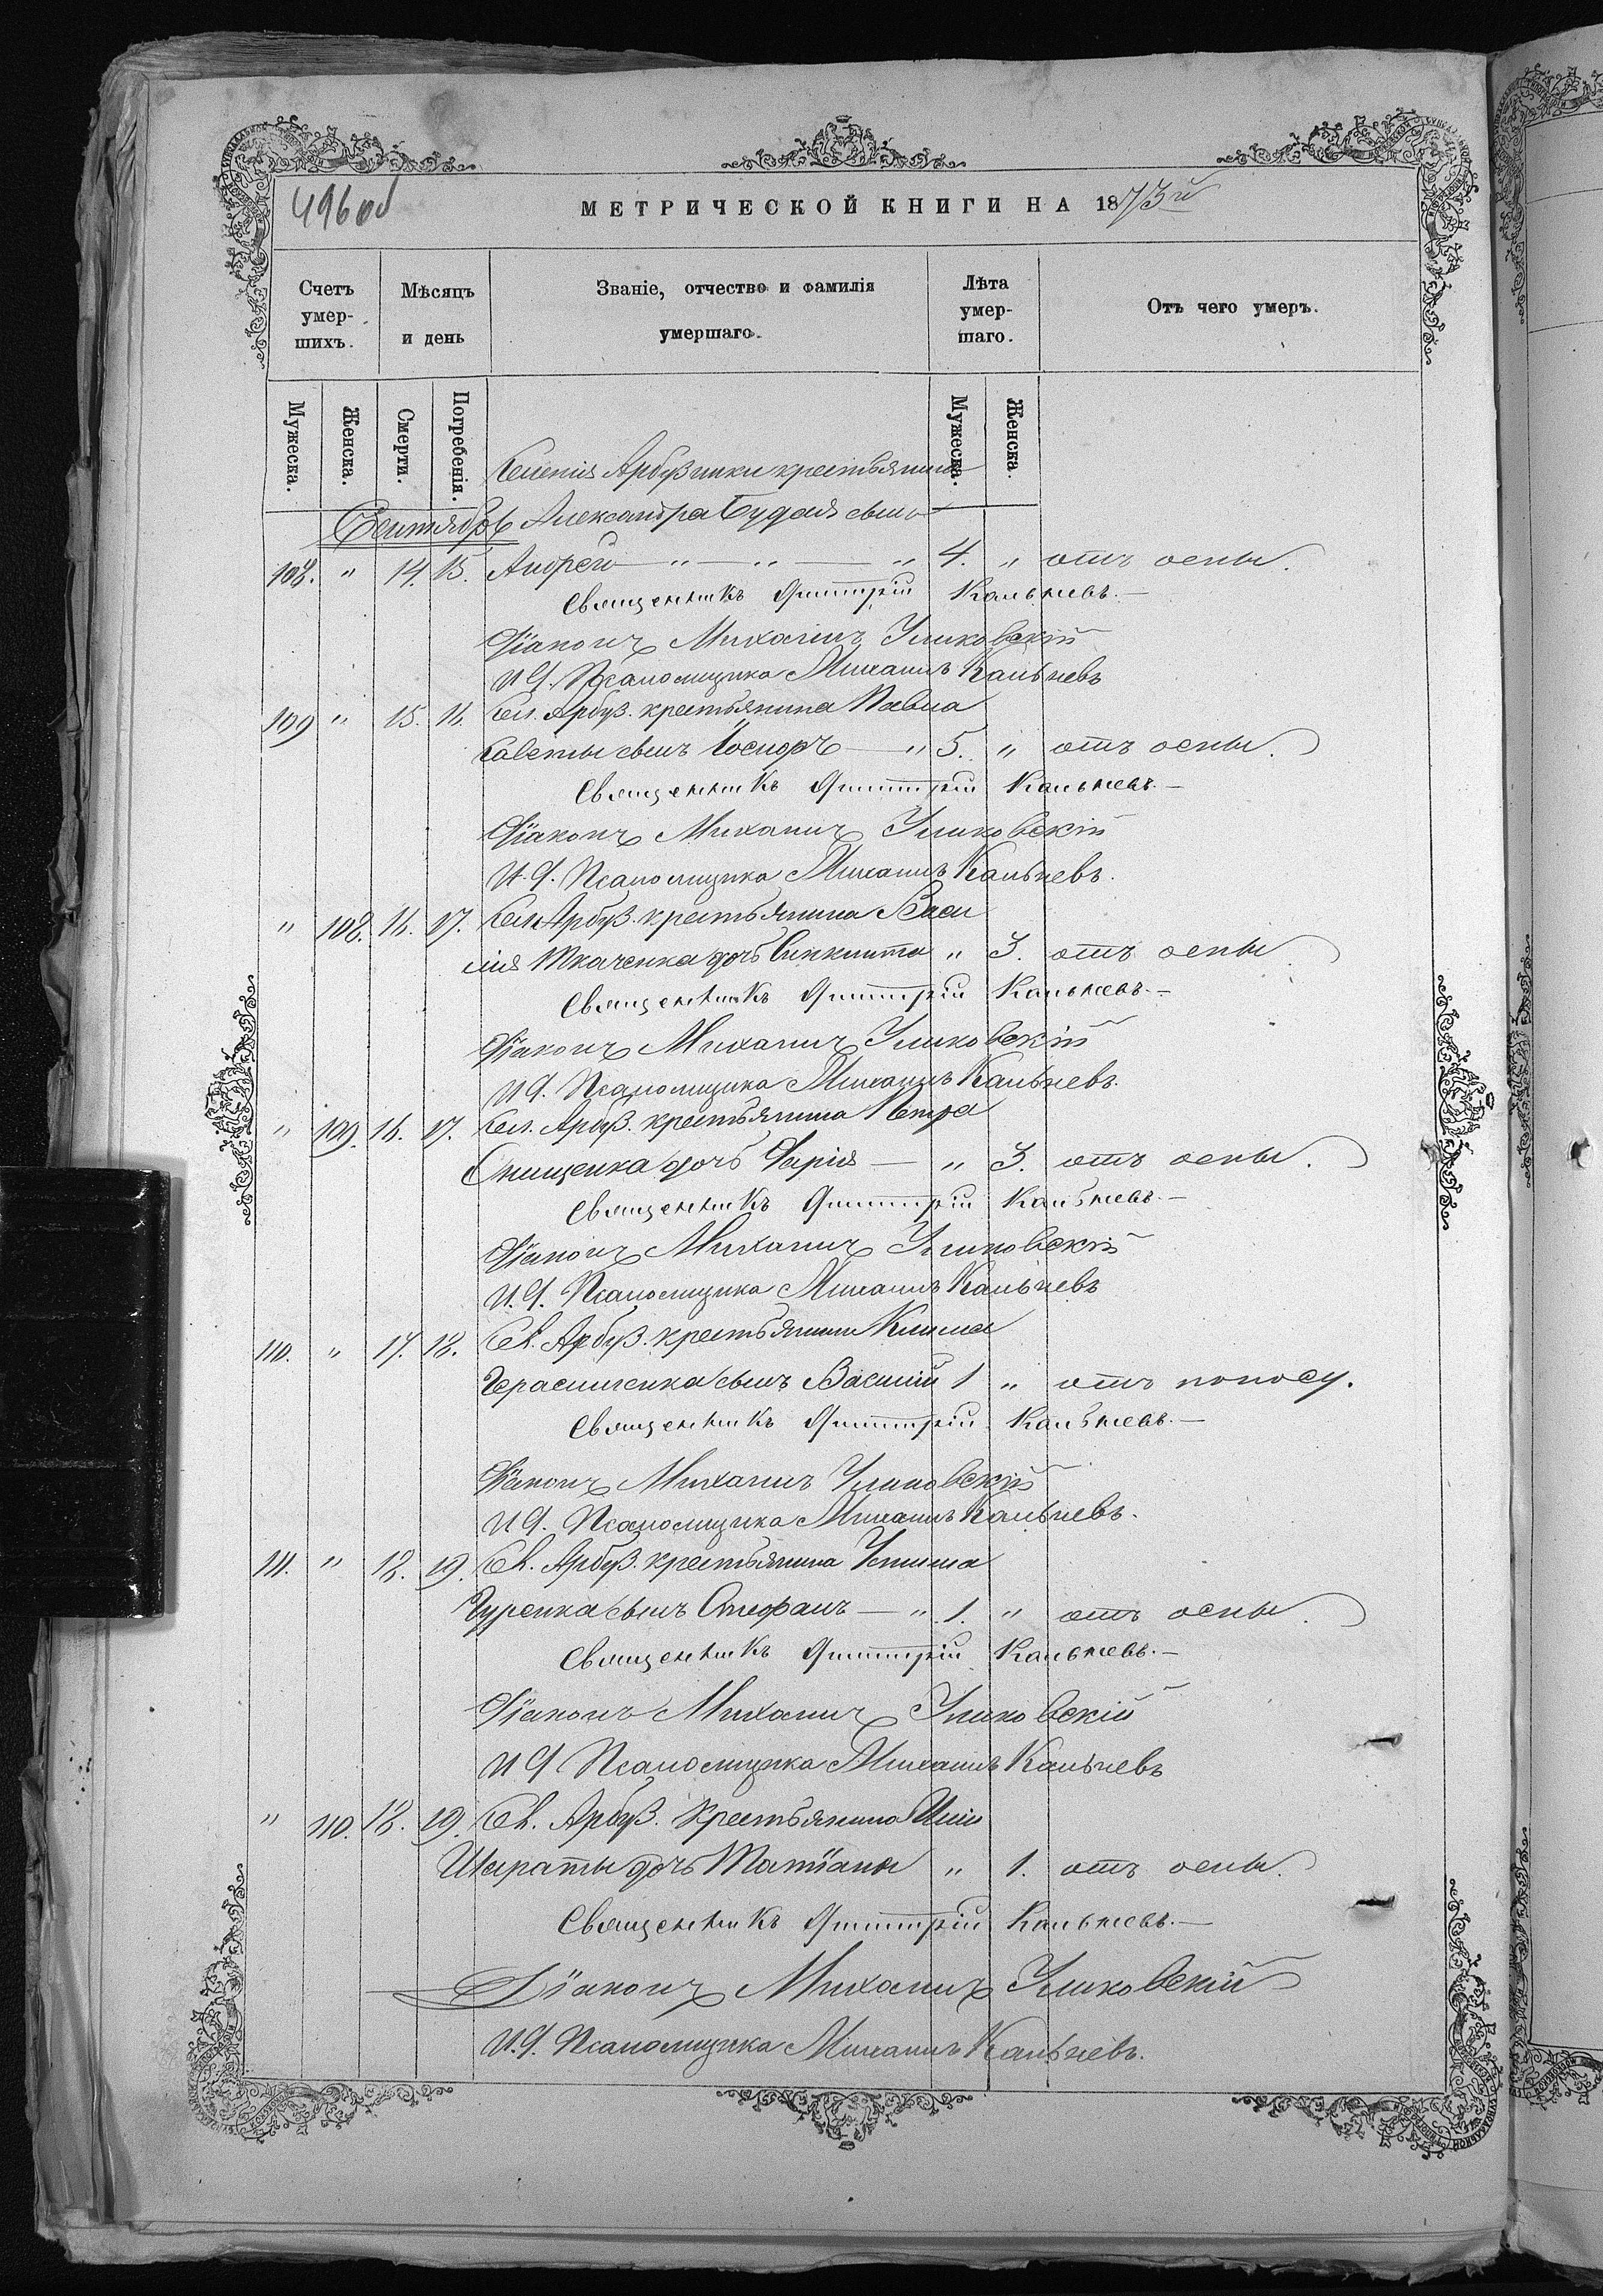 496 об
МЕТРИЧЕСКОЙ КНИГИ НА 1873й
Счетъ умер- шихъ.
Мѣсяцъ и день
Званіе, отчество и фамилія умершаго.
Лѣта умер- шаго.
Отъ чего умеръ.
Мужеска. Женска. Смерти. Погребенія. Мужеска. Женска.
Селенія Арбузинки крестьянина
Сентябрь Александра Будая сынъ
108. " 14. 15. Андрей — " — " — " 4. " отъ оспы.
Священникъ Димитрій Кальневъ. —
Діаконъ Михаилъ Уликовскій
И. Д. Псаломщика Михаилъ Кальневъ
109 " 15. 16. Сел. Арбуз. крестьянина Павла
сынъ Іосифъ — " 5. " отъ оспы.
Священникъ Димитрій Кальневъ. —
Діаконъ Михаилъ Уликовскій
И. Д. Псаломщика Михаилъ Кальневъ.
" 108. 16. 17. Сел. Арбуз. крестьянина Васи
лія Ткаченка дочь " 3. отъ оспы
Священникъ Димитрій Кальневъ. —
Діаконъ Михаилъ Уликовскій
И Д. Псаломщика Михаилъ Кальневъ.
" 109. 16. 17. Сел. Арбуз. крестьянина Петра
Онищенка дочь Дарія — " 3. отъ оспы.
Священникъ Димитрій Кальневъ. —
Діаконъ Михаилъ Уликовскій
И. Д. Псаломщика Михаилъ Кальневъ
110. " 17. 18. Сел. Арбуз. крестьянина Клима
Герасименка сынъ Василій 1 " отъ поносу.
Священникъ Димитрій Кальневъ. —
Діаконъ Михаилъ Уликовскій
И Д. Псаломщика Михаилъ Кальневъ.
111. " 18. 19. Сел. Арбуз. крестьянина
Гуренка сынъ Стефанъ — " 1. " отъ оспы.
Священникъ Димитрій Кальневъ. —
Діаконъ Михаилъ Уликовскій
И Д Псаломщика Михаилъ Кальневъ
" 110. 18. 19. Сел. Арбуз. Крестьянина Иліи
дочь Татіана " 1. отъ оспы.
Священникъ Димитрій Кальневъ. —
Діаконъ Михаилъ Уликовскій
И. Д. Псаломщика Михаилъ Кальневъ.